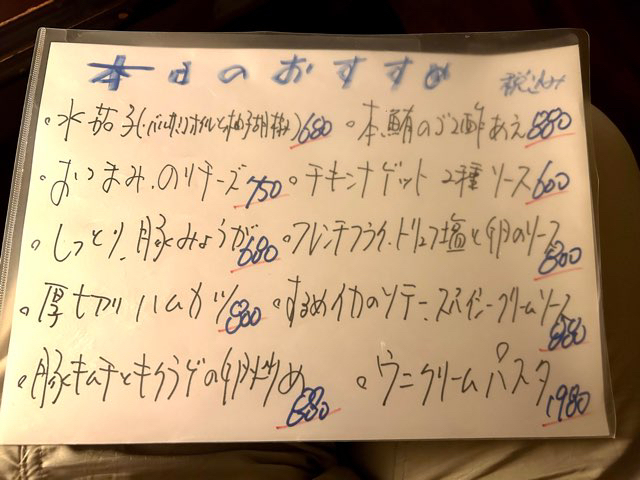 本日のおすすめ 税込み
・水茄子(・バルサミコオイルと柚子胡椒)680 ・本鮪のゴマ酢あえ880
・おつまみ、のりチーズ750 ・チキンナゲット 2種ソース600
・しっとり、豚みょうが680 ・フレンチフライ、トリュフ塩と卵のソース800
・厚切りハムカツ800 ・するめイカのソテー、スパイシークリームソース880
・豚キムチとキクラゲの卵炒め880 ・ウニクリームパスタ1980